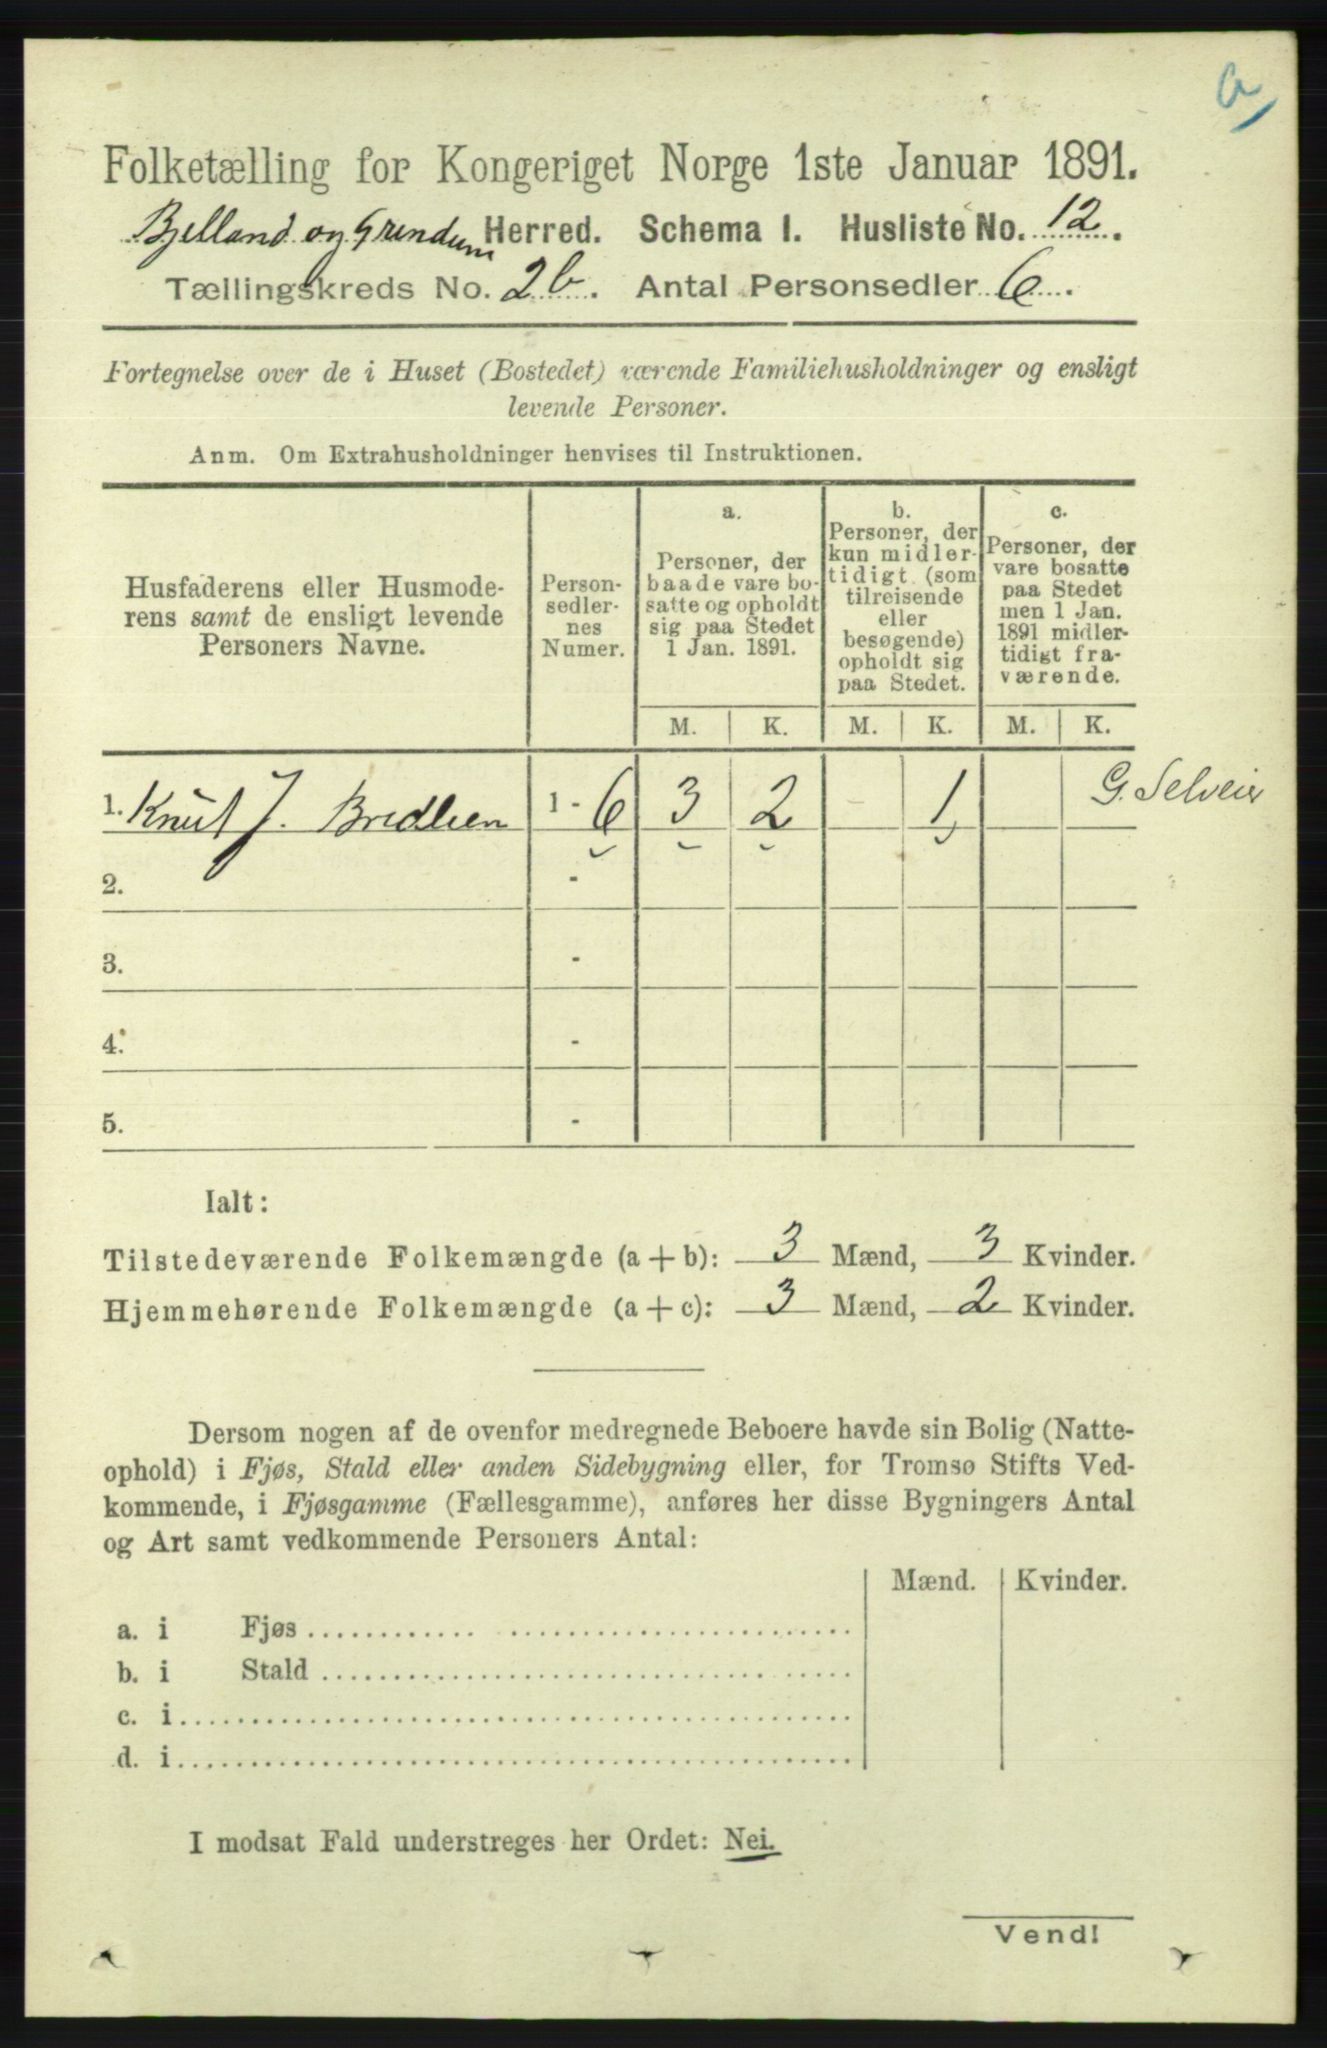 G
Folketælling for Kongeriget Norge 1ste Januar 1891.
Bjelland og Grindum Herred. Schema I. Husliste No. 12.
Tællingskreds No. 2b. Antal Personsedler 6.
Fortegnelse over de i Huset (Bostedet) værende Familiehusholdninger og ensligt
levende Personer.
Anm. Om Extrahusholdninger henvises til Instruktionen.
Husfaderens eller Husmode-
rens samt de ensligt levende
Personers Navne.
Person-
sedler-
nes
Numer.
a.
Personer, der
baade vare bo-
satte og opholdt
sig paa Stedet
1 Jan. 1891.
b.
Personer, der
kun midler-
tidigt (som
tilreisende
eller
besøgende)
opholdt sig
paa Stedet.
c.
Personer, der
vare bosatte
paa Stedet
men 1 Jan.
1891 midler-
tidigt fra-
værende.
M. K. M. K. M. K.
1. Knut J. Bredlien 1 - 6 3 2 - 1 G. Selveier
2. -
3. -
4. -
5. -
Ialt:
Tilstedeværende Folkemængde (a + b): 3 Mænd, 3 Kvinder.
Hjemmehørende Folkemængde (a + c): 3 Mænd, 2 Kvinder.
Dersom nogen af de ovenfor medregnede Beboere havde sin Bolig (Natte-
ophold) i Fjøs, Stald eller anden Sidebygning eller, for Tromsø Stifts Ved-
kommende, i Fjøsgamme (Fællesgamme), anføres her disse Bygningers Antal
og Art samt vedkommende Personers Antal:
Mænd. Kvinder.
a. i Fjøs
b. i Stald
c. i
d. i
I modsat Fald understreges her Ordet: Nei.
Vend!